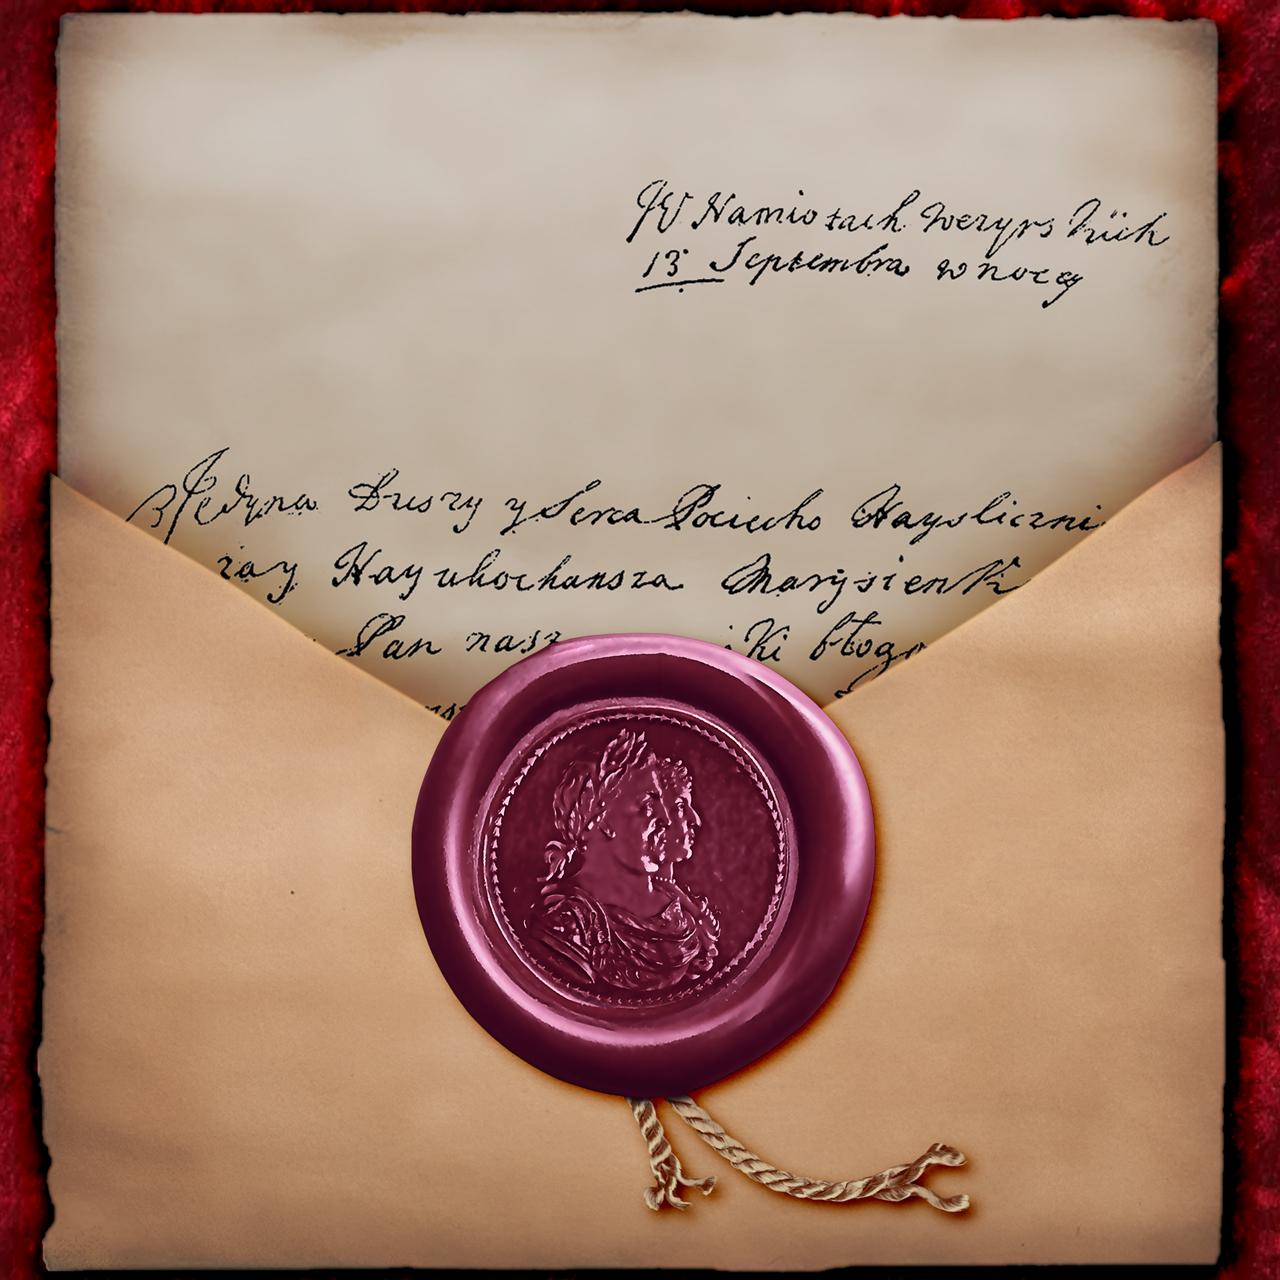 W Namiotach Wezyrskich
13 Septembra w nocy
Jedyna Duszy y Serca Pociecho Naysliczni
szay Nayukochansza Marysienk
Pan nasz ki błogo